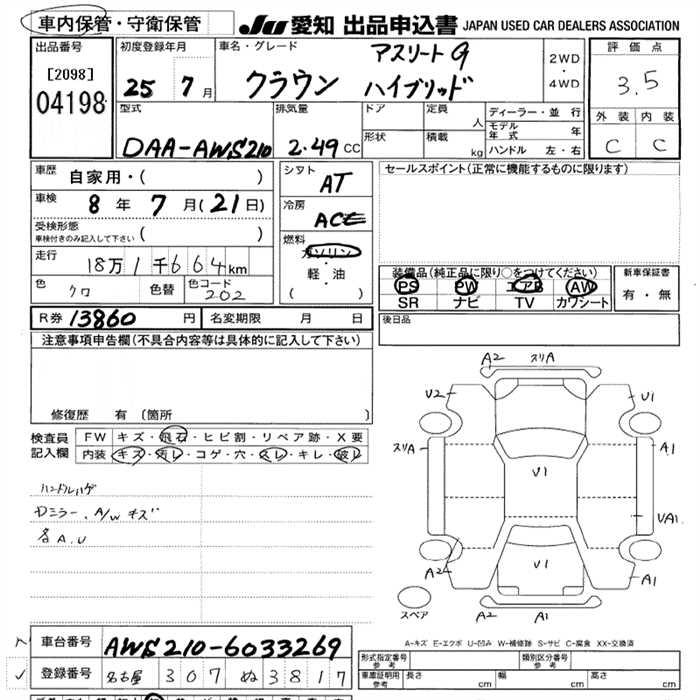 車内保管・守衛保管
JU 愛知 出品申込書 JAPAN USED CAR DEALERS ASSOCIATION
出品番号
[2098]
04198
初度登録年月
25 7月
車名・グレード
アスリートG
クラウン ハイブリッド
2WD
・
4WD
評価点
3.5
外装 内装
C C
型式
DAA-AWS210
排気量
2.49 CC
ドア
形状
定員
人
積載
kg
ディーラー・並行
モデル年式 年
ハンドル 左・右
車歴 自家用・( )
車検 8年 7月(21日)
受検形態
車検付きのみ記入して下さい ( )
走行
18万1千664km
色 クロ 色替 色コード 202
シフト
AT
冷房
ACE
燃料
ガソリン
・
軽・油
( )
セールスポイント(正常に機能するものに限ります)
装備品(純正品に限り○をつけてください)
PS PW エアB AW
SR ナビ TV カワシート
新車保証書
有・無
R券 13860 円 名変期限 月 日
後日品
注意事項申告欄(不具合内容等は具体的に記入して下さい)
修復歴 有 [箇所 ]
検査員記入欄
FW キズ・飛石・ヒビ割・リペア跡・X要
内装 キズ・汚レ・コゲ・穴・スレ・キレ・破レ
ハンドルハゲ
ドミラー、A/Wキズ
各A.U
A2 スリA
U2 U1
スリA A1
U1
UA1
U1
A2 A1
A2 A1
スペア
A-キズ E-エクボ U-凹み W-補修跡 S-サビ C-腐食 XX-交換済
車台番号 AWS210-6033269
登録番号 名古屋 307 ぬ 3817
形式指定番号
参考
類別区分番号
参考
車庫証明用
参考
長さ 幅 高さ